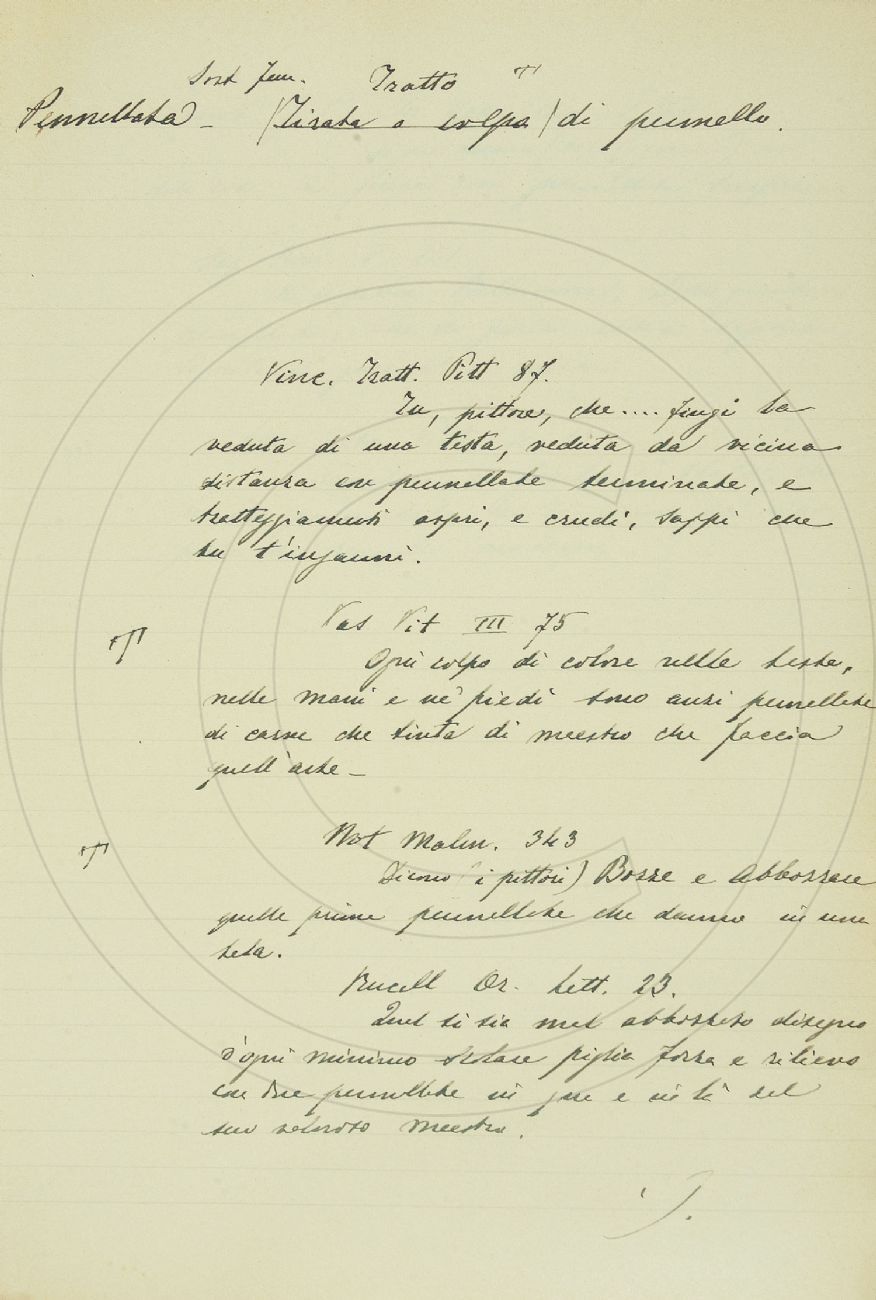 Sost fem. Tratto T
Pennellata – (Tirata o colpo) di pennello.
Vinc. Tratt. Pitt 87.
Tu, pittore, che .... fingi la
veduta di una testa, veduta da vicina
distanza con pennellate terminate, e
tratteggiamenti aspri, e crudi, sappi che
tu t'inganni.
Vas Vit III 75
T
Ogni colpo di colore nelle teste,
nelle mani e ne' piedi sono anzi pennellate
di carne che tinta di maestro che faccia
quell'arte –
Not Malm. 343
T
Dicono i pittori) Bozze e Abbozzare
quelle prime pennellate che danno in una
tela.
Rucell Or. Lett. 23.
Qual si sia mal abbozzato disegno
d'ogni minimo scolare piglia forza e rilievo
con due pennellate in qua e in là del
suo valoroso maestro.